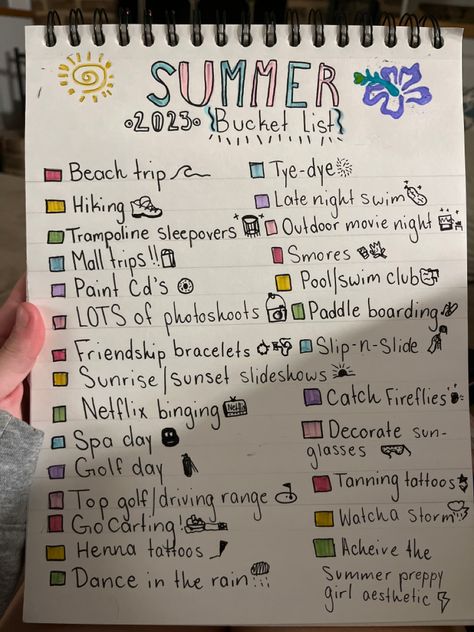 SUMMER
2023
Bucket list
Beach trip
Hiking
Trampoline sleepovers
Mall trips!!
Paint Cd's
LOTS of photoshoots
Friendship bracelets
Sunrise/sunset slideshows
Netflix binging
Netflix
Spa day
Golf day
Top golf/driving range
Go carting!
Henna tattoos
Dance in the rain
Tye-dye
Late night swim
Outdoor movie night
Smores
Pool/swim club
Paddle boarding
Slip-n-Slide
Catch Fireflies
Decorate sun-
glasses
Tanning tattoos
Watch a storm
Acheive the
Summer preppy
girl aesthetic